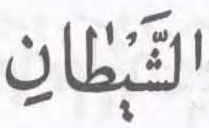 الشَّيْطٰانِ